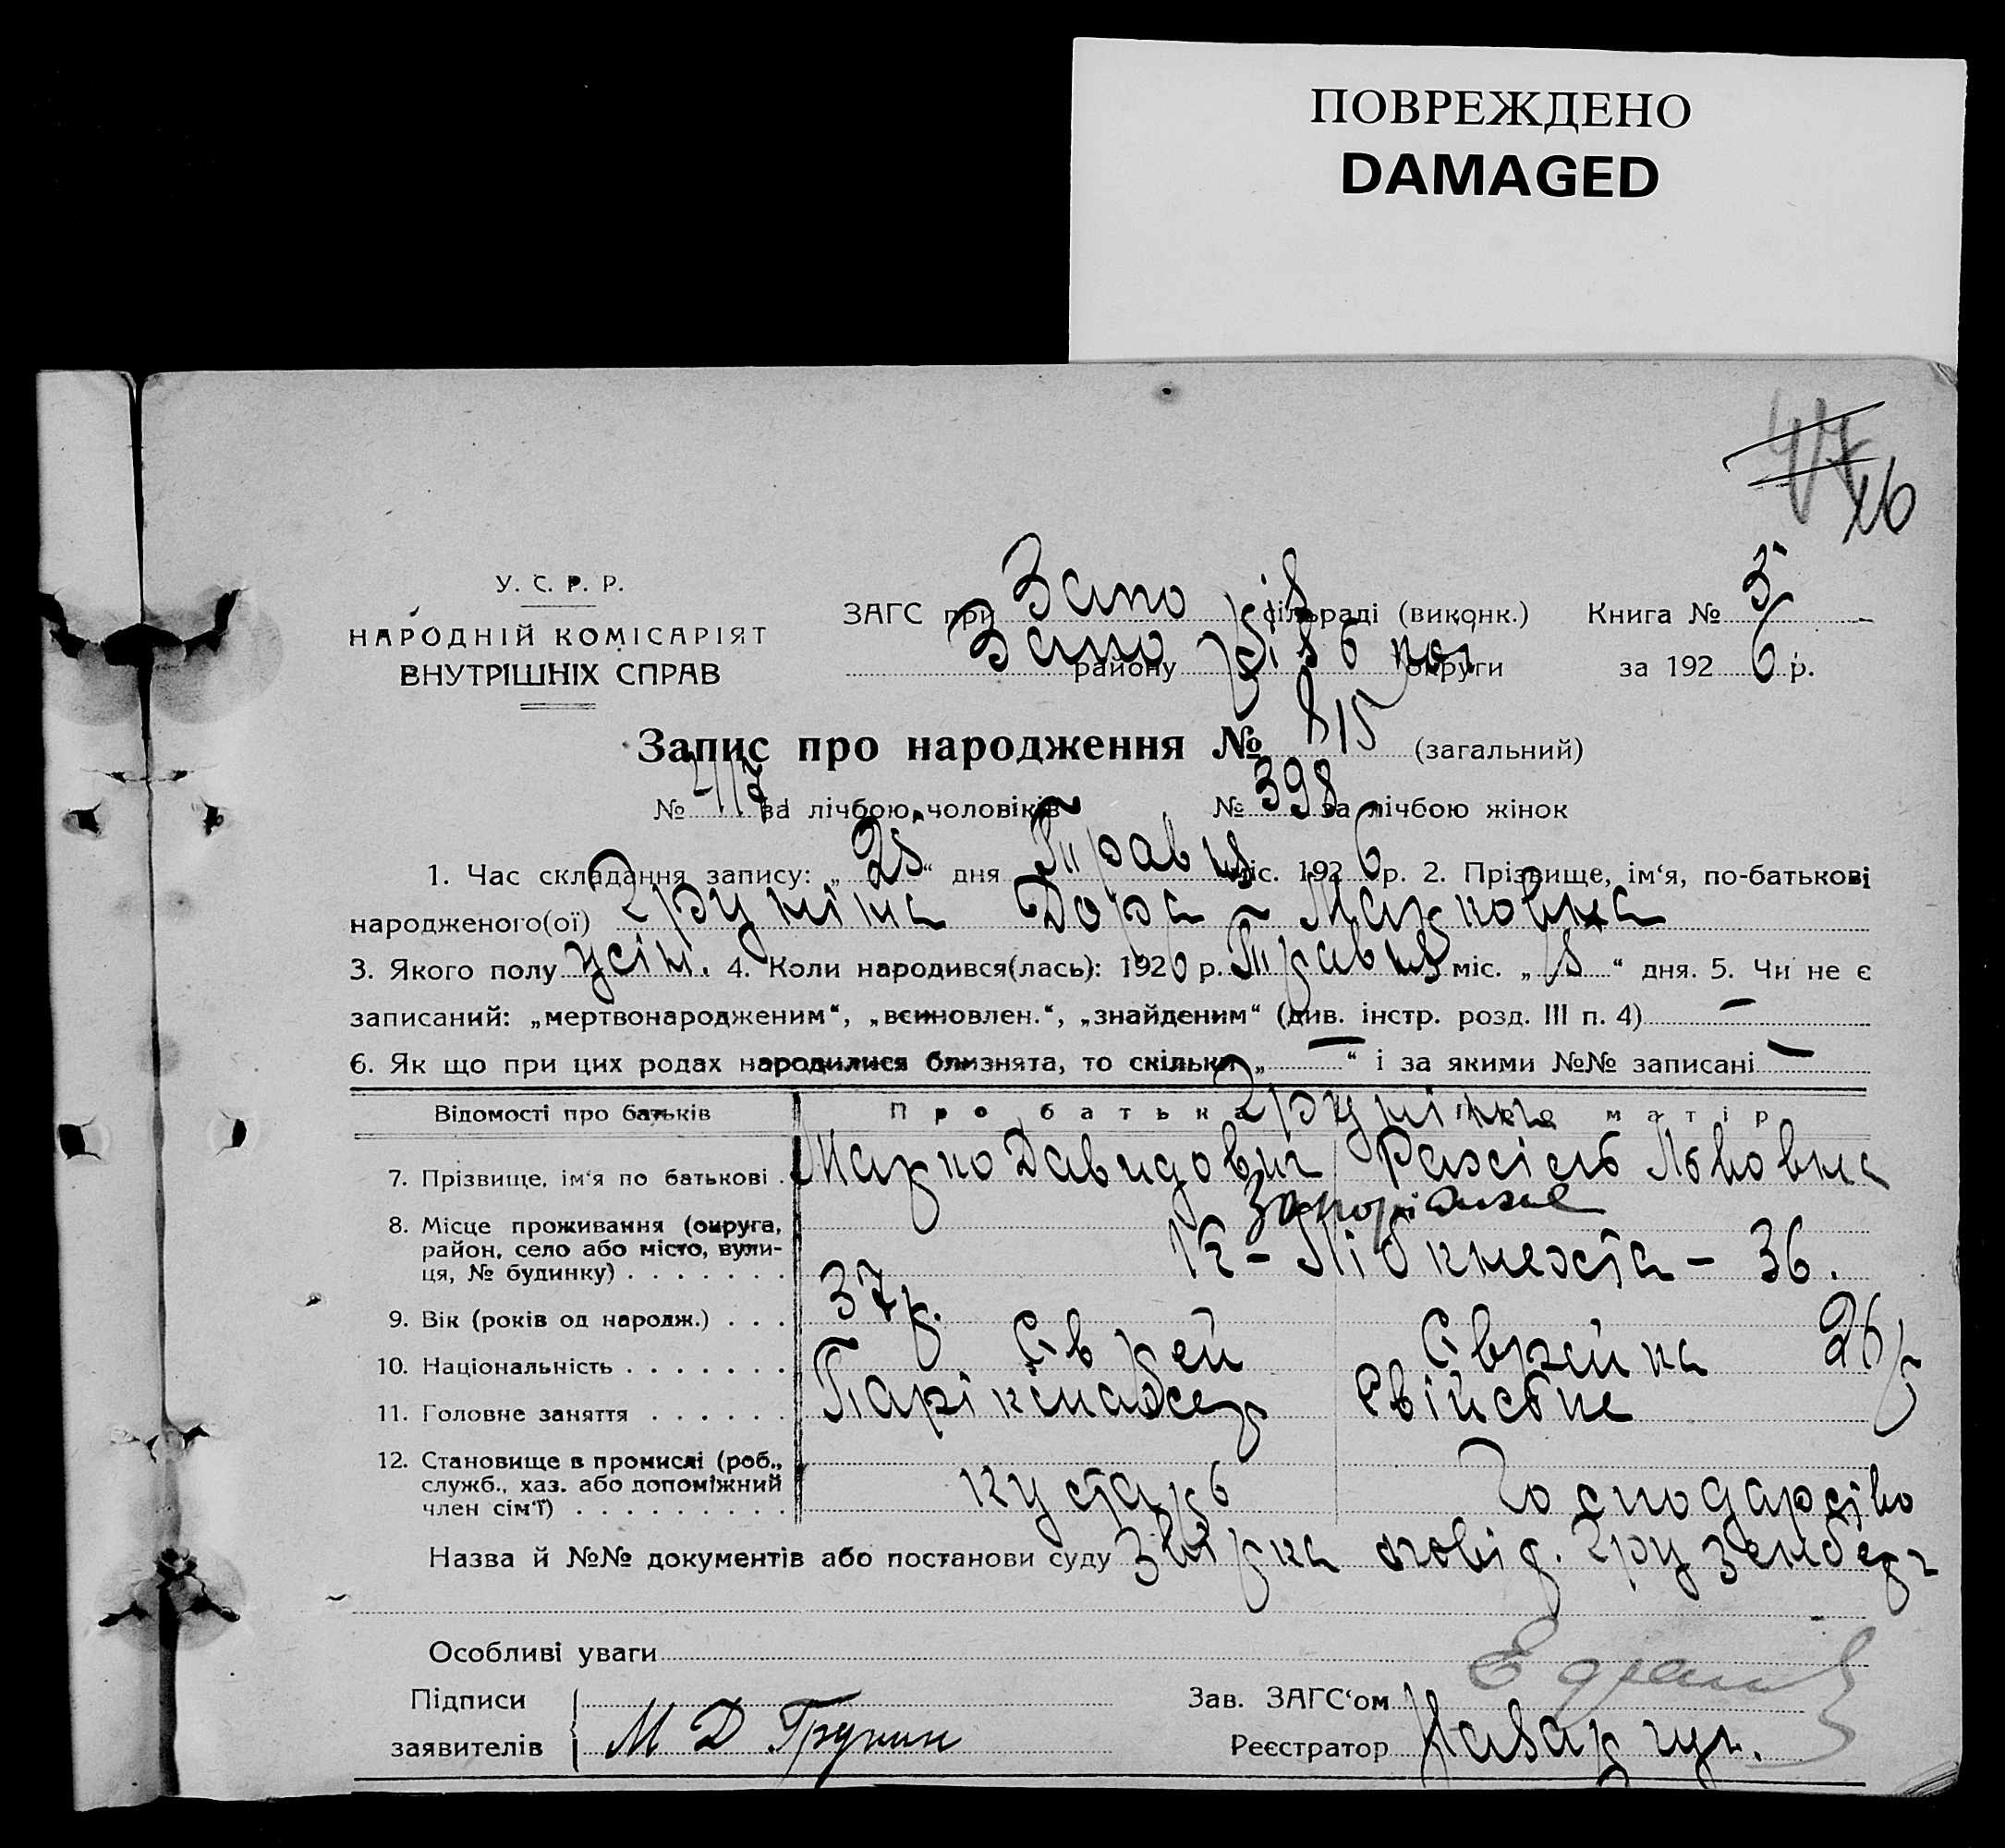 ПОВРЕЖДЕНО
DAMAGED
26
У. С. Р. Р.
НАРОДНІЙ КОМІСАРІЯТ
ВНУТРІШНІХ СПРАВ
ЗАГС при Запоріз сільраді (виконк.) Книга № 5
району округи за 1926 р.
Запис про народження № 815 (загальний)
№ 417 за лічбою чоловіків № 398 за лічбою жінок
1. Час складання запису: „25“ дня Травня міс. 1926 р. 2. Прізвище, ім‘я, по-батькові
народженого(ої) Грукіна Дора - Марковна
3. Якого полу жін. 4. Коли народився(лась): 1926 р. Травня міс. „18“ дня. 5. Чи не є
записаний: „мертвонародженим“, „всиновлен.“, „знайденим“ (див. інстр. розд. III п. 4) —
6. Як що при цих родах народилися близнята, то скільки „—“ і за якими №№ записані —
Відомості про батьків Про батька Про матір
7. Прізвище, ім‘я по батькові Марко Давидович Рахіль Львовна
8. Місце проживання (округа, район, село або місто, вулиця, № будинку) Запоріжжє
К-Лібкнехта - 36.
9. Вік (років од народж.) 37 р. 26 р
10. Національність Єврей Єврейка
11. Головне заняття Парікмахер Свійське
12. Становище в промислі (роб., служб., хаз. або допоміжний член сім‘ї) кустарь Господарство
Назва й №№ документів або постанови суду
Особливі уваги
Підписи Зав. ЗАГС‘ом
заявителів М Д Грукин Реєстратор